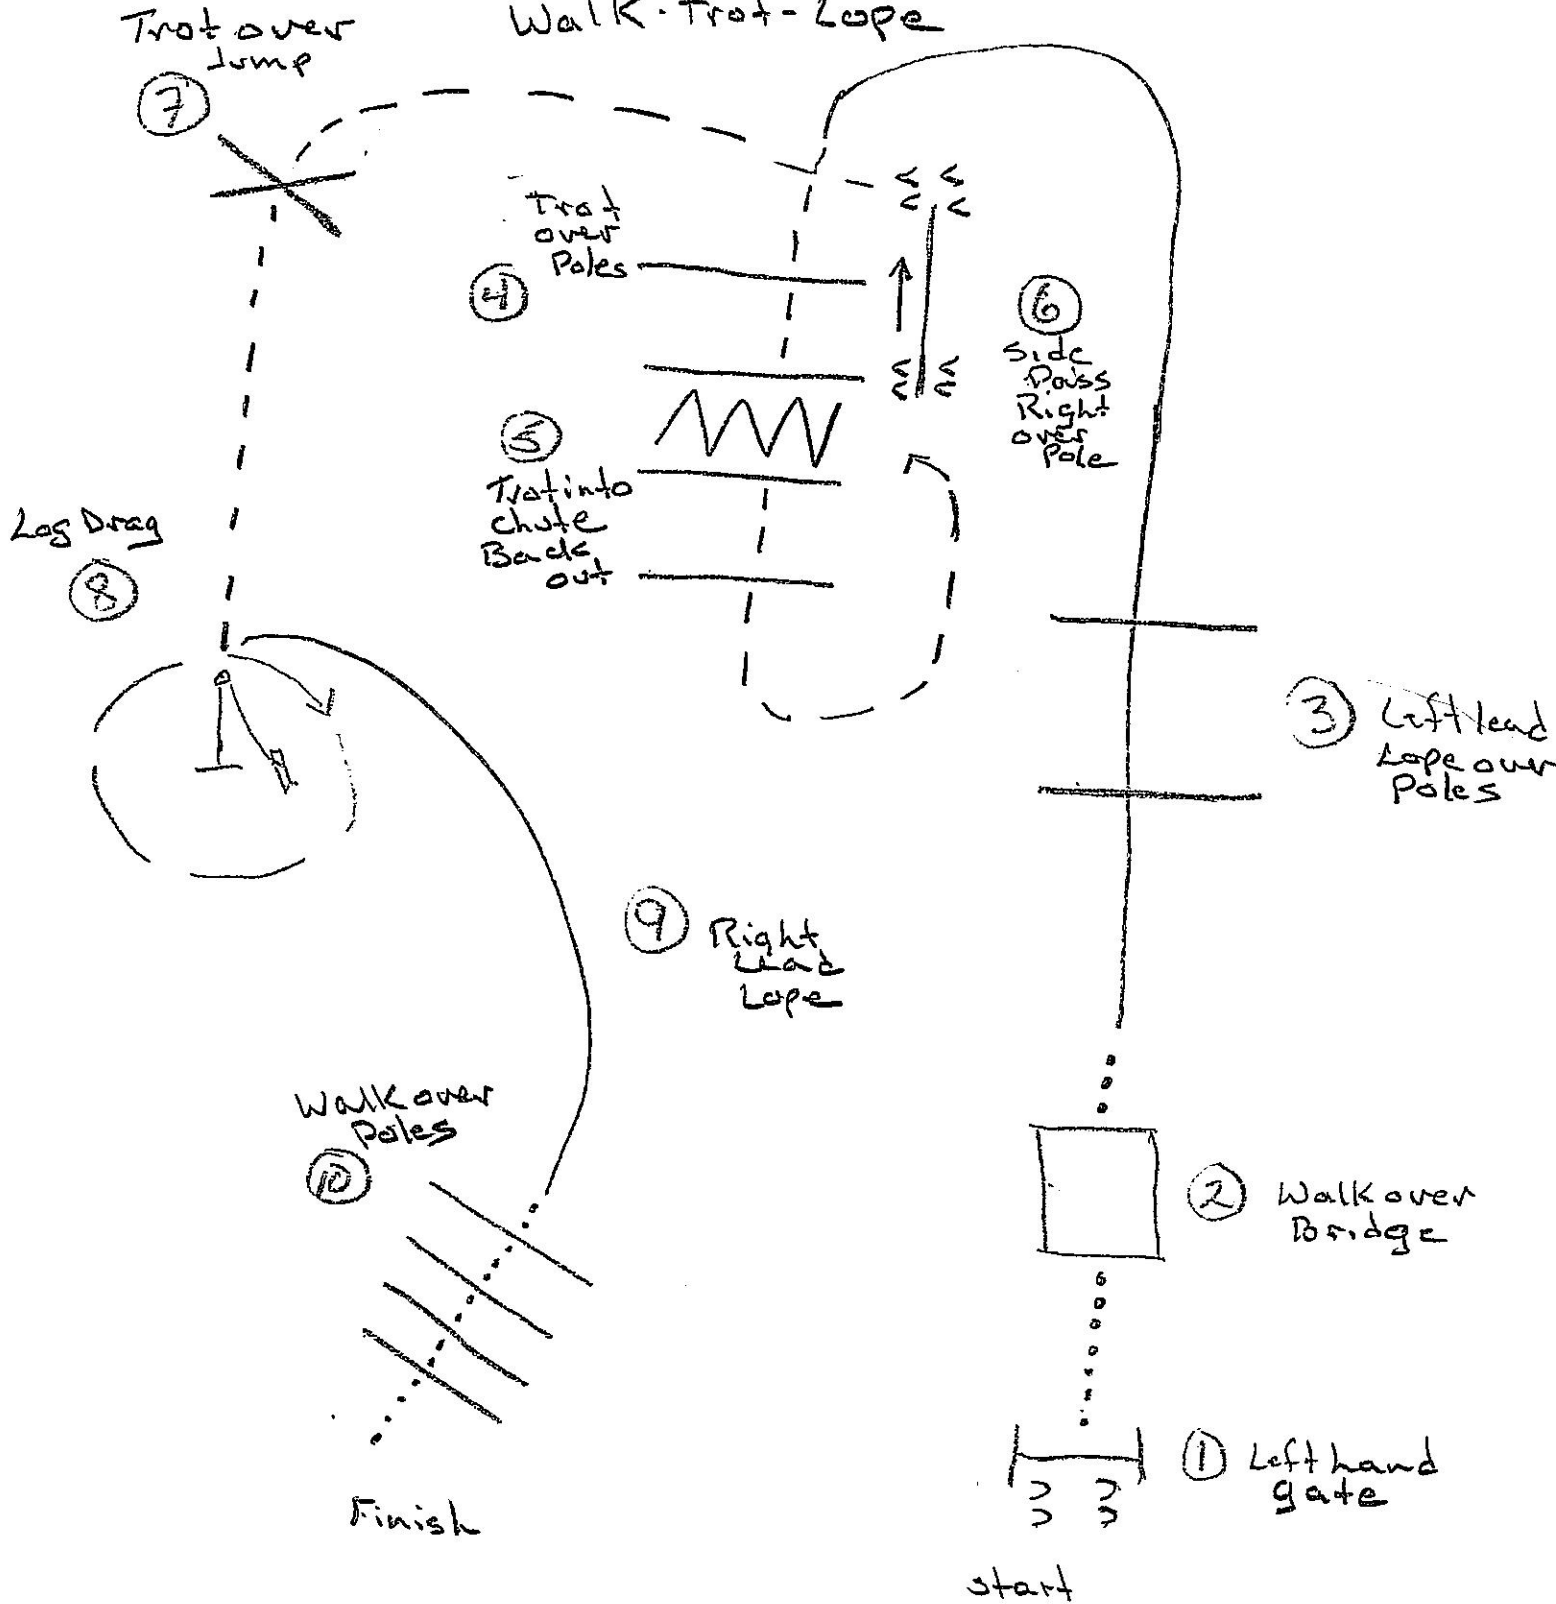 Walk-Trot-Lope
Trot over
Jump
7
Trot
over
Poles
4
6
Side
Pass
Right
over
Pole
5
Trot into
chute
Back
out
Log Drag
8
3 Left lead
Lope over
Poles
9 Right
Lead
Lope
Walk over
Poles
10
2 Walk over
Bridge
1 Left hand
gate
Finish
start